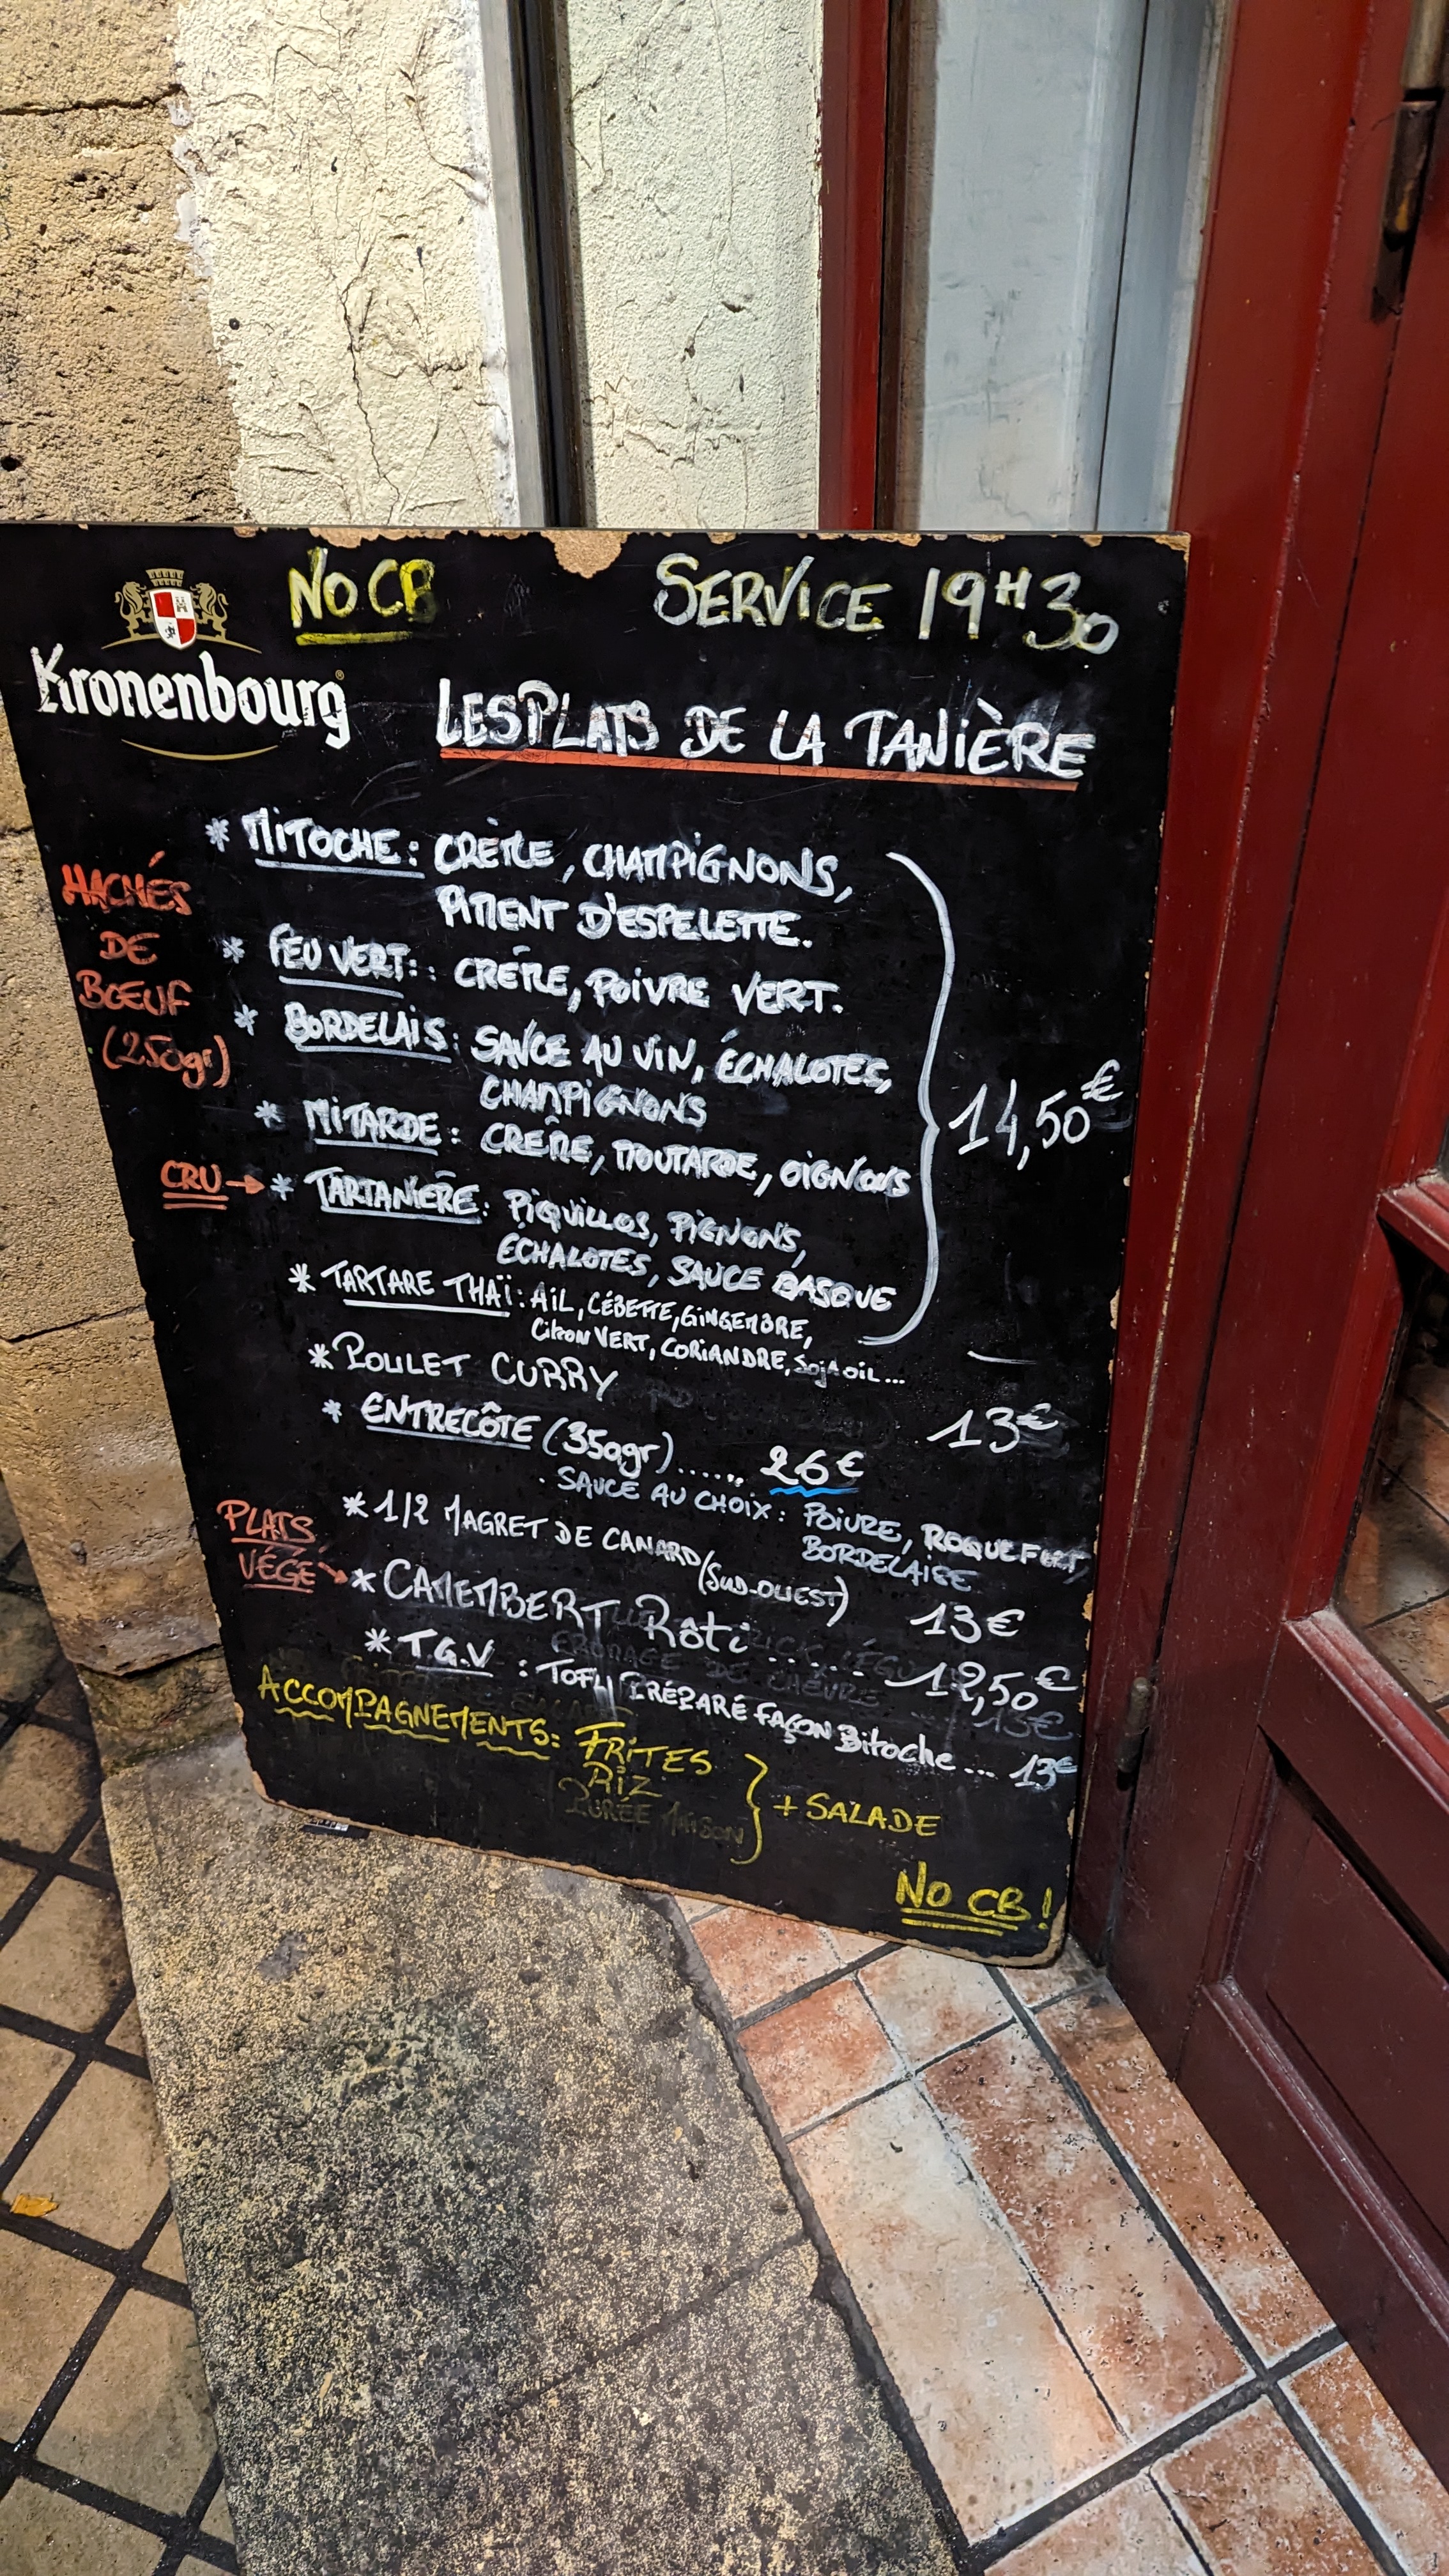 NO CB
SERVICE 19H30
Kronenbourg
LES PLATS DE LA TANIÈRE
HACHÉS
DE
BŒUF
(250gr)
* MITOCHE : CRÈME, CHAMPIGNONS,
PIMENT D'ESPELETTE.
* FEU VERT : : CRÈME, POIVRE VERT.
* BORDELAIS : SAUCE AU VIN, ÉCHALOTES,
CHAMPIGNONS
* MITARDE : CRÈME, MOUTARDE, OIGNONS
14,50€
CRU → * TARTANIÈRE : PIQUILLOS, PIGNONS,
ECHALOTES, SAUCE BASQUE
* TARTARE THAÏ : AIL, CÉBETTE, GINGEMBRE,
Citron VERT, CORIANDRE, Soja oil ...
* POULET CURRY
13€
* ENTRECÔTE (350gr) ...... 26€
SAUCE AU CHOIX : POIVRE, ROQUEFORT,
BORDELAISE
* 1/2 MAGRET DE CANARD (SUD-OUEST) 13€
PLATS
VÉGÉ : → * CAMEMBERT Rôti ....... 12,50€
* T.G.V : TOFU PRÉPARÉ FAÇON Bitoche ... 13€
ACCOMPAGNEMENTS : FRITES
RIZ
PURÉE MAISON
+ SALADE
NO CB !